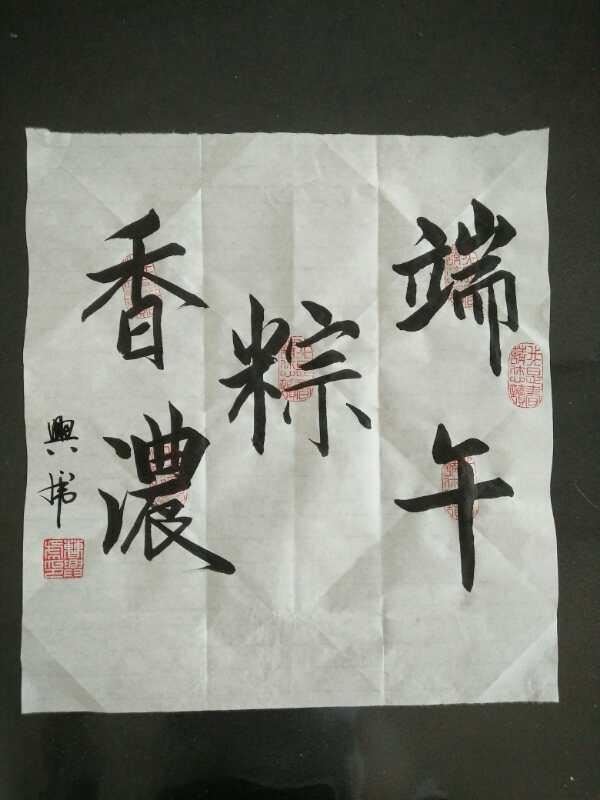 端午
粽
香濃
興